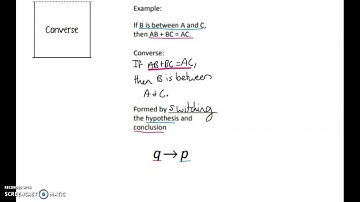 Converse
Example:
If B is between A and C,
then AB + BC = AC.
Converse:
If AB+BC=AC,
then B is between
A + C.
Formed by switching
the hypothesis and
conclusion
q→p
RECORDED WITH
SCREENCAST MATIC